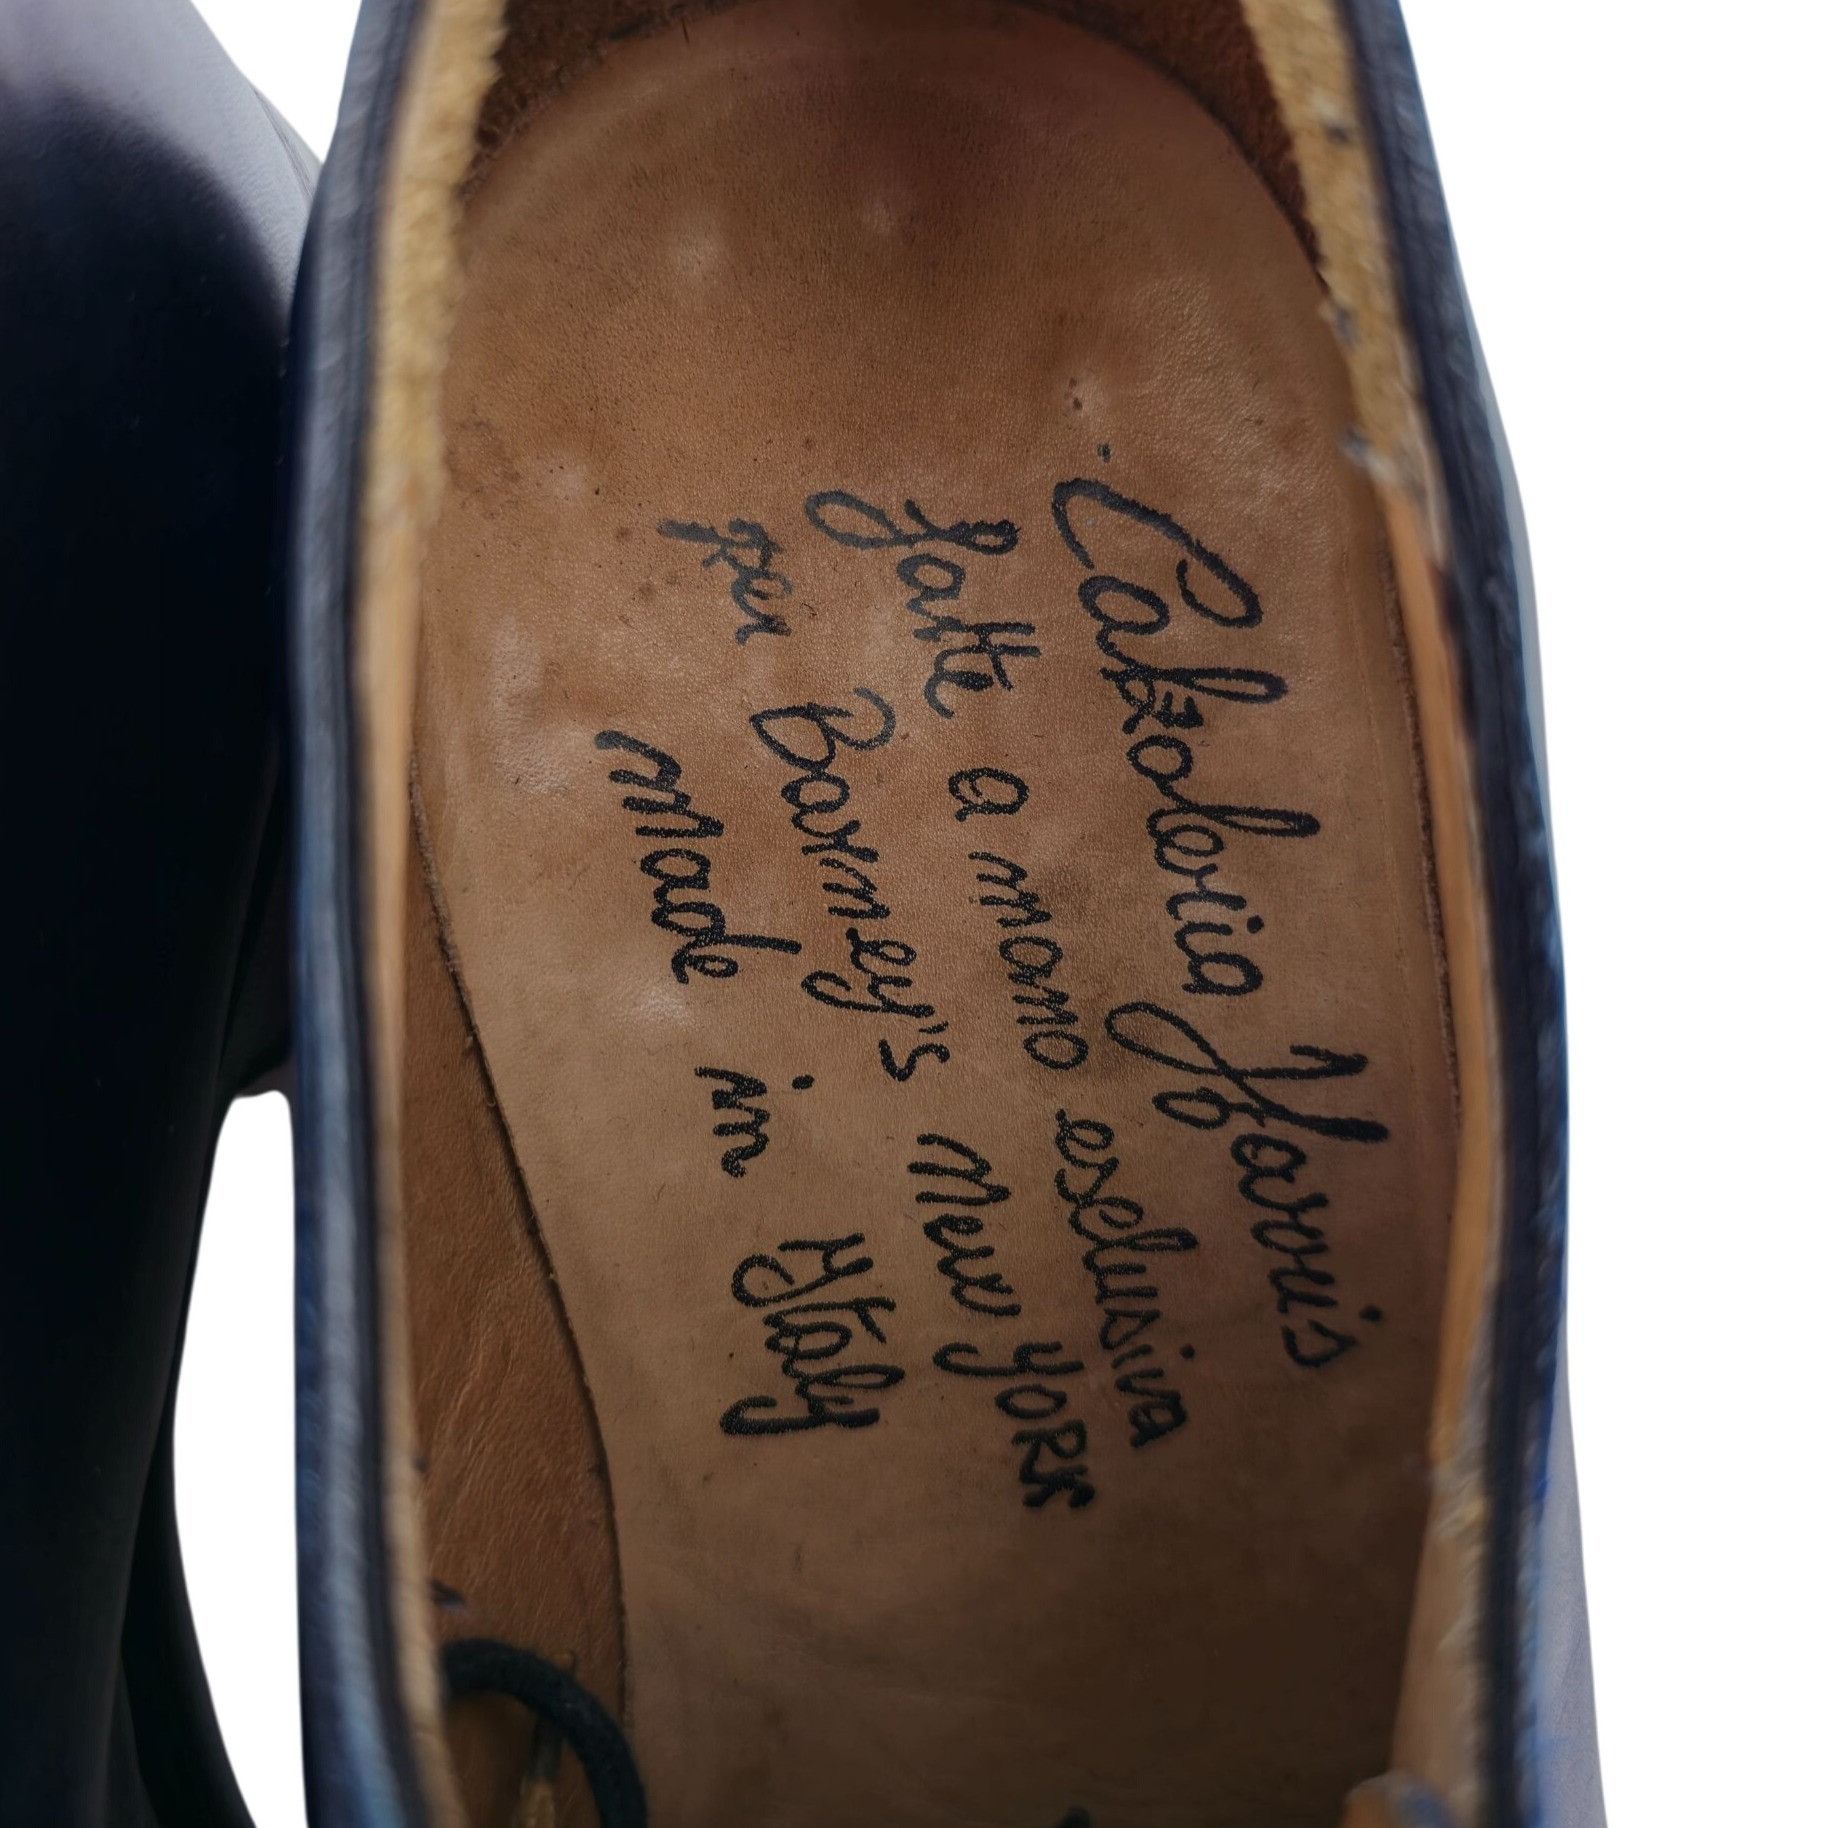 Calzoleria Harris
fatte a mano esclusiva
per Barney's New York
made in Italy